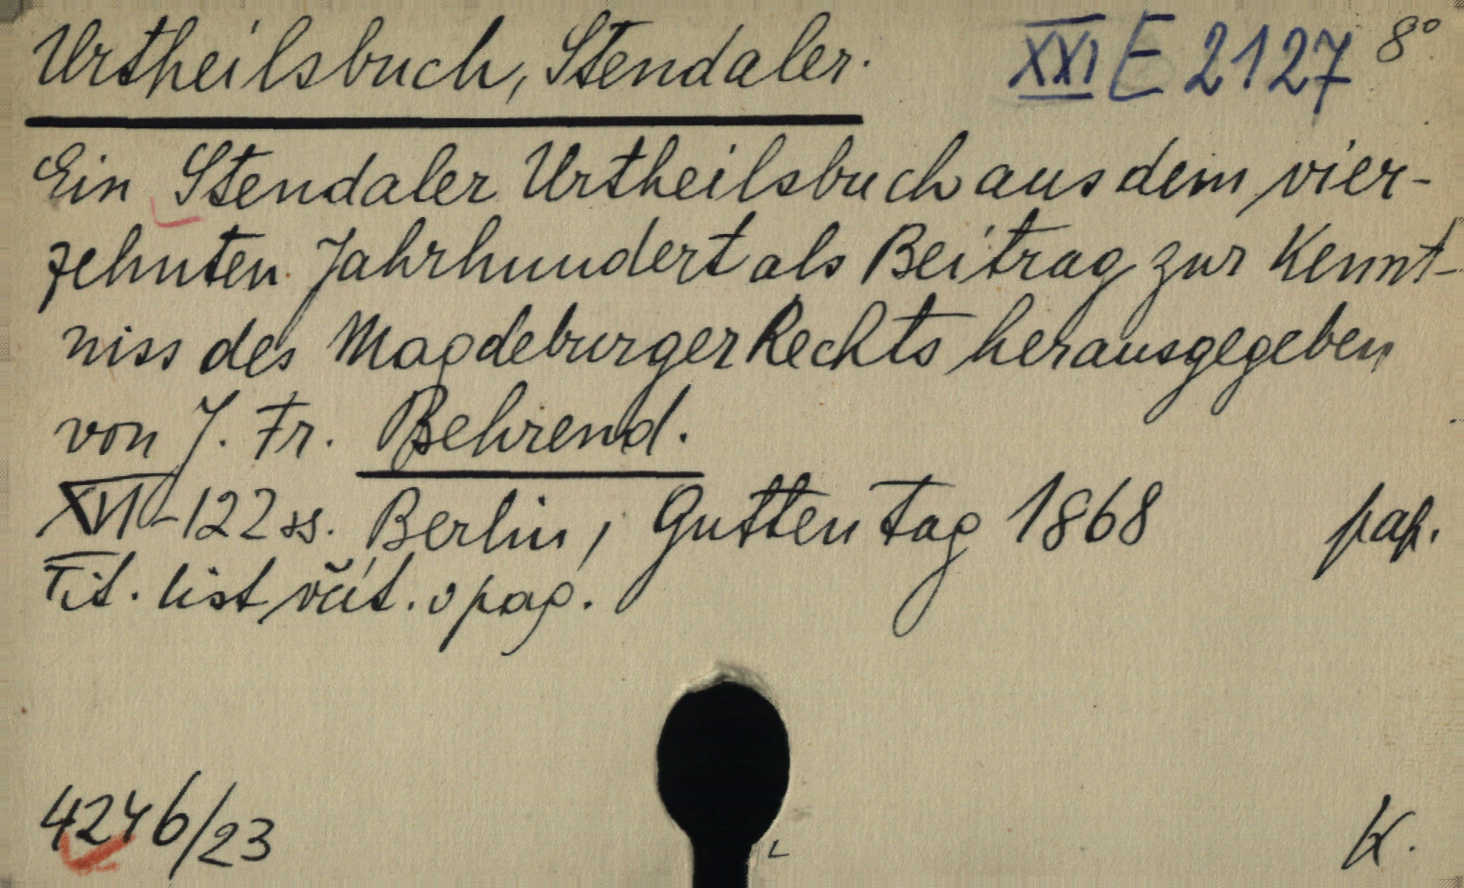 Urtheilsbuch, Stendaler. XXI E 2127 8°
Ein Stendaler Urtheilsbuch aus dem vier-
zehnten Jahrhundert als Beitrag zur Kennt-
niss des Magdeburger Rechts herausgegeben
von J. Fr. Behrend.
XVI-122 ss. Berlin, Guttentag 1868 pap.
Tit. list včít. v pag.
4246/23 K.